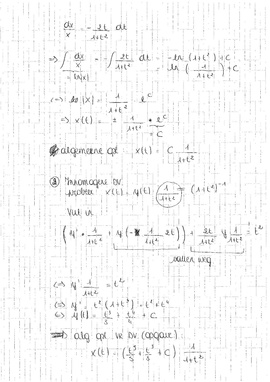 dx/x = - 2t/(1+t²) dt
<=> ∫ dx/x = -∫ 2t/(1+t²) dt = -ln(1+t²) + C
= ln|x| = ln(1/(1+t²)) + C
<=> |x| = 1/(1+t²) e^C
<=> x(t) = ± 1/(1+t²) • e^C
= C
algemene opl x(t) = C 1/(1+t²)
② Inhomogene DV.
probeer x(t) = y(t) • 1/(1+t²) = (1+t²)^-1
Vul in
(y' • 1/(1+t²) + y(- 1/(1+t²) 2t)) + 2t/(1+t²) y 1/(1+t²) = t²
vallen weg
<=> y' 1/(1+t²) = t²
<=> y' = t²(1+t²) = t² + t⁴
<=> y(t) = t³/3 + t⁵/5 + C
=> alg opl. vd DV (opgave)
x(t) = (t³/3 + t⁵/5 + C) • 1/(1+t²)